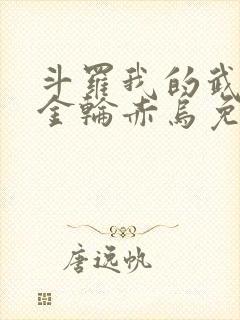 斗羅我的武
金輪赤烏免
唐逸帆